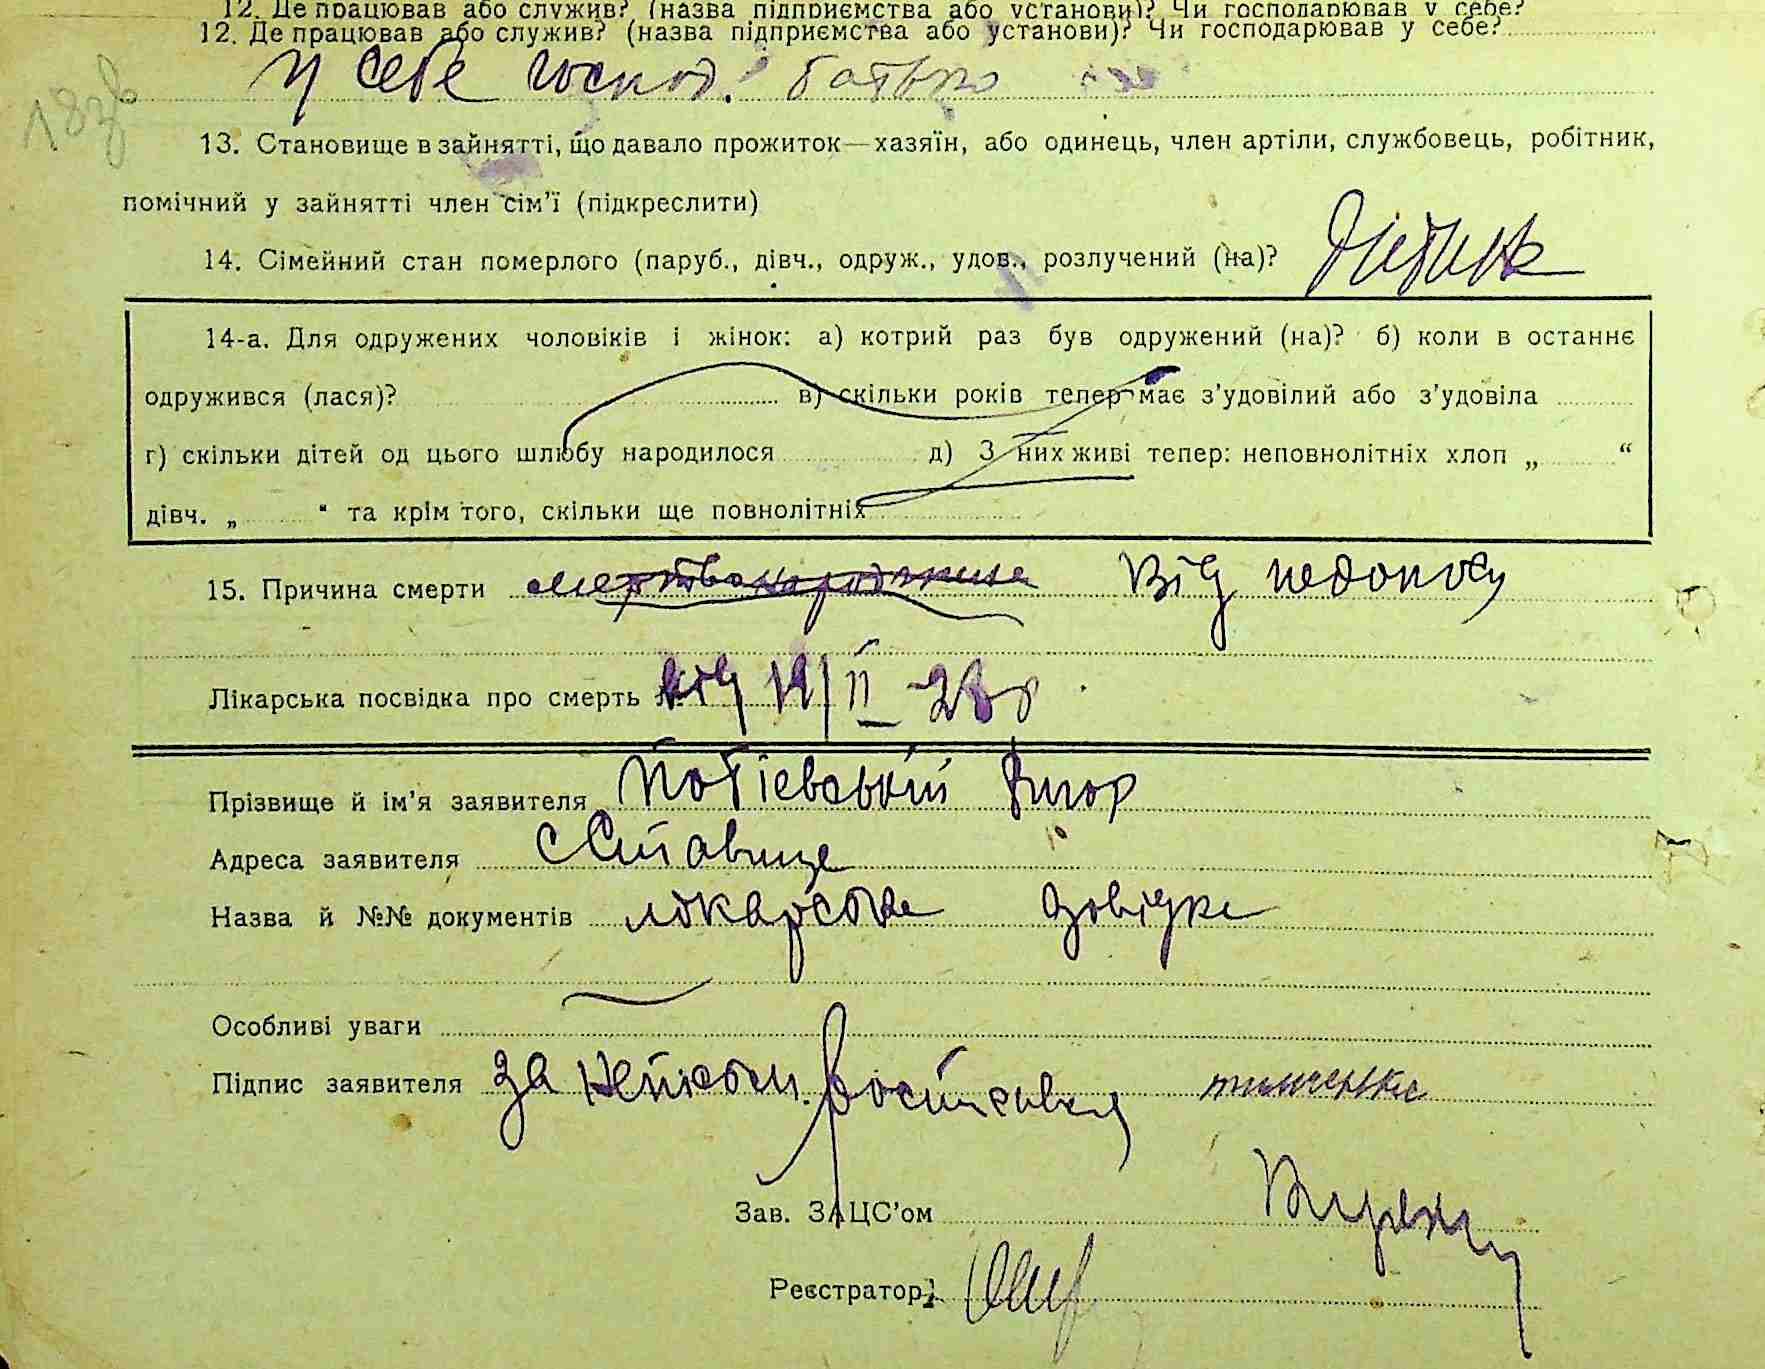 12. Де працював або служив? (назва підприємства або установи)? Чи господарював у себе?
12. Де працював або служив? (назва підприємства або установи)? Чи господарював у себе?
У себе господ. батько
13. Становище в зайнятті, що давало прожиток—хазяїн, або одинець, член артіли, службовець, робітник,
помічний у зайнятті член сім’ї (підкреслити)
14. Сімейний стан померлого (паруб., дівч., одруж., удов., розлучений (на)? дитина
14-а. Для одружених чоловіків і жінок: а) котрий раз був одружений (на)? б) коли в останнє
одружився (лася)? в) скільки років тепер має з’удовілий або з’удовіла
г) скільки дітей од цього шлюбу народилося д) З них живі тепер: неповнолітніх хлоп „ “
дівч. „ “ та крім того, скільки ще повнолітніх
15. Причина смерти мертвонароджене Від
Лікарська посвідка про смерть № від 19/II-28 р
Прізвище й ім’я заявителя
Адреса заявителя с Ставище
Назва й №№ документів лікарська довідка
Особливі уваги
Підпис заявителя За неписьм.
Зав. ЗАЦС’ом
Реєстратор